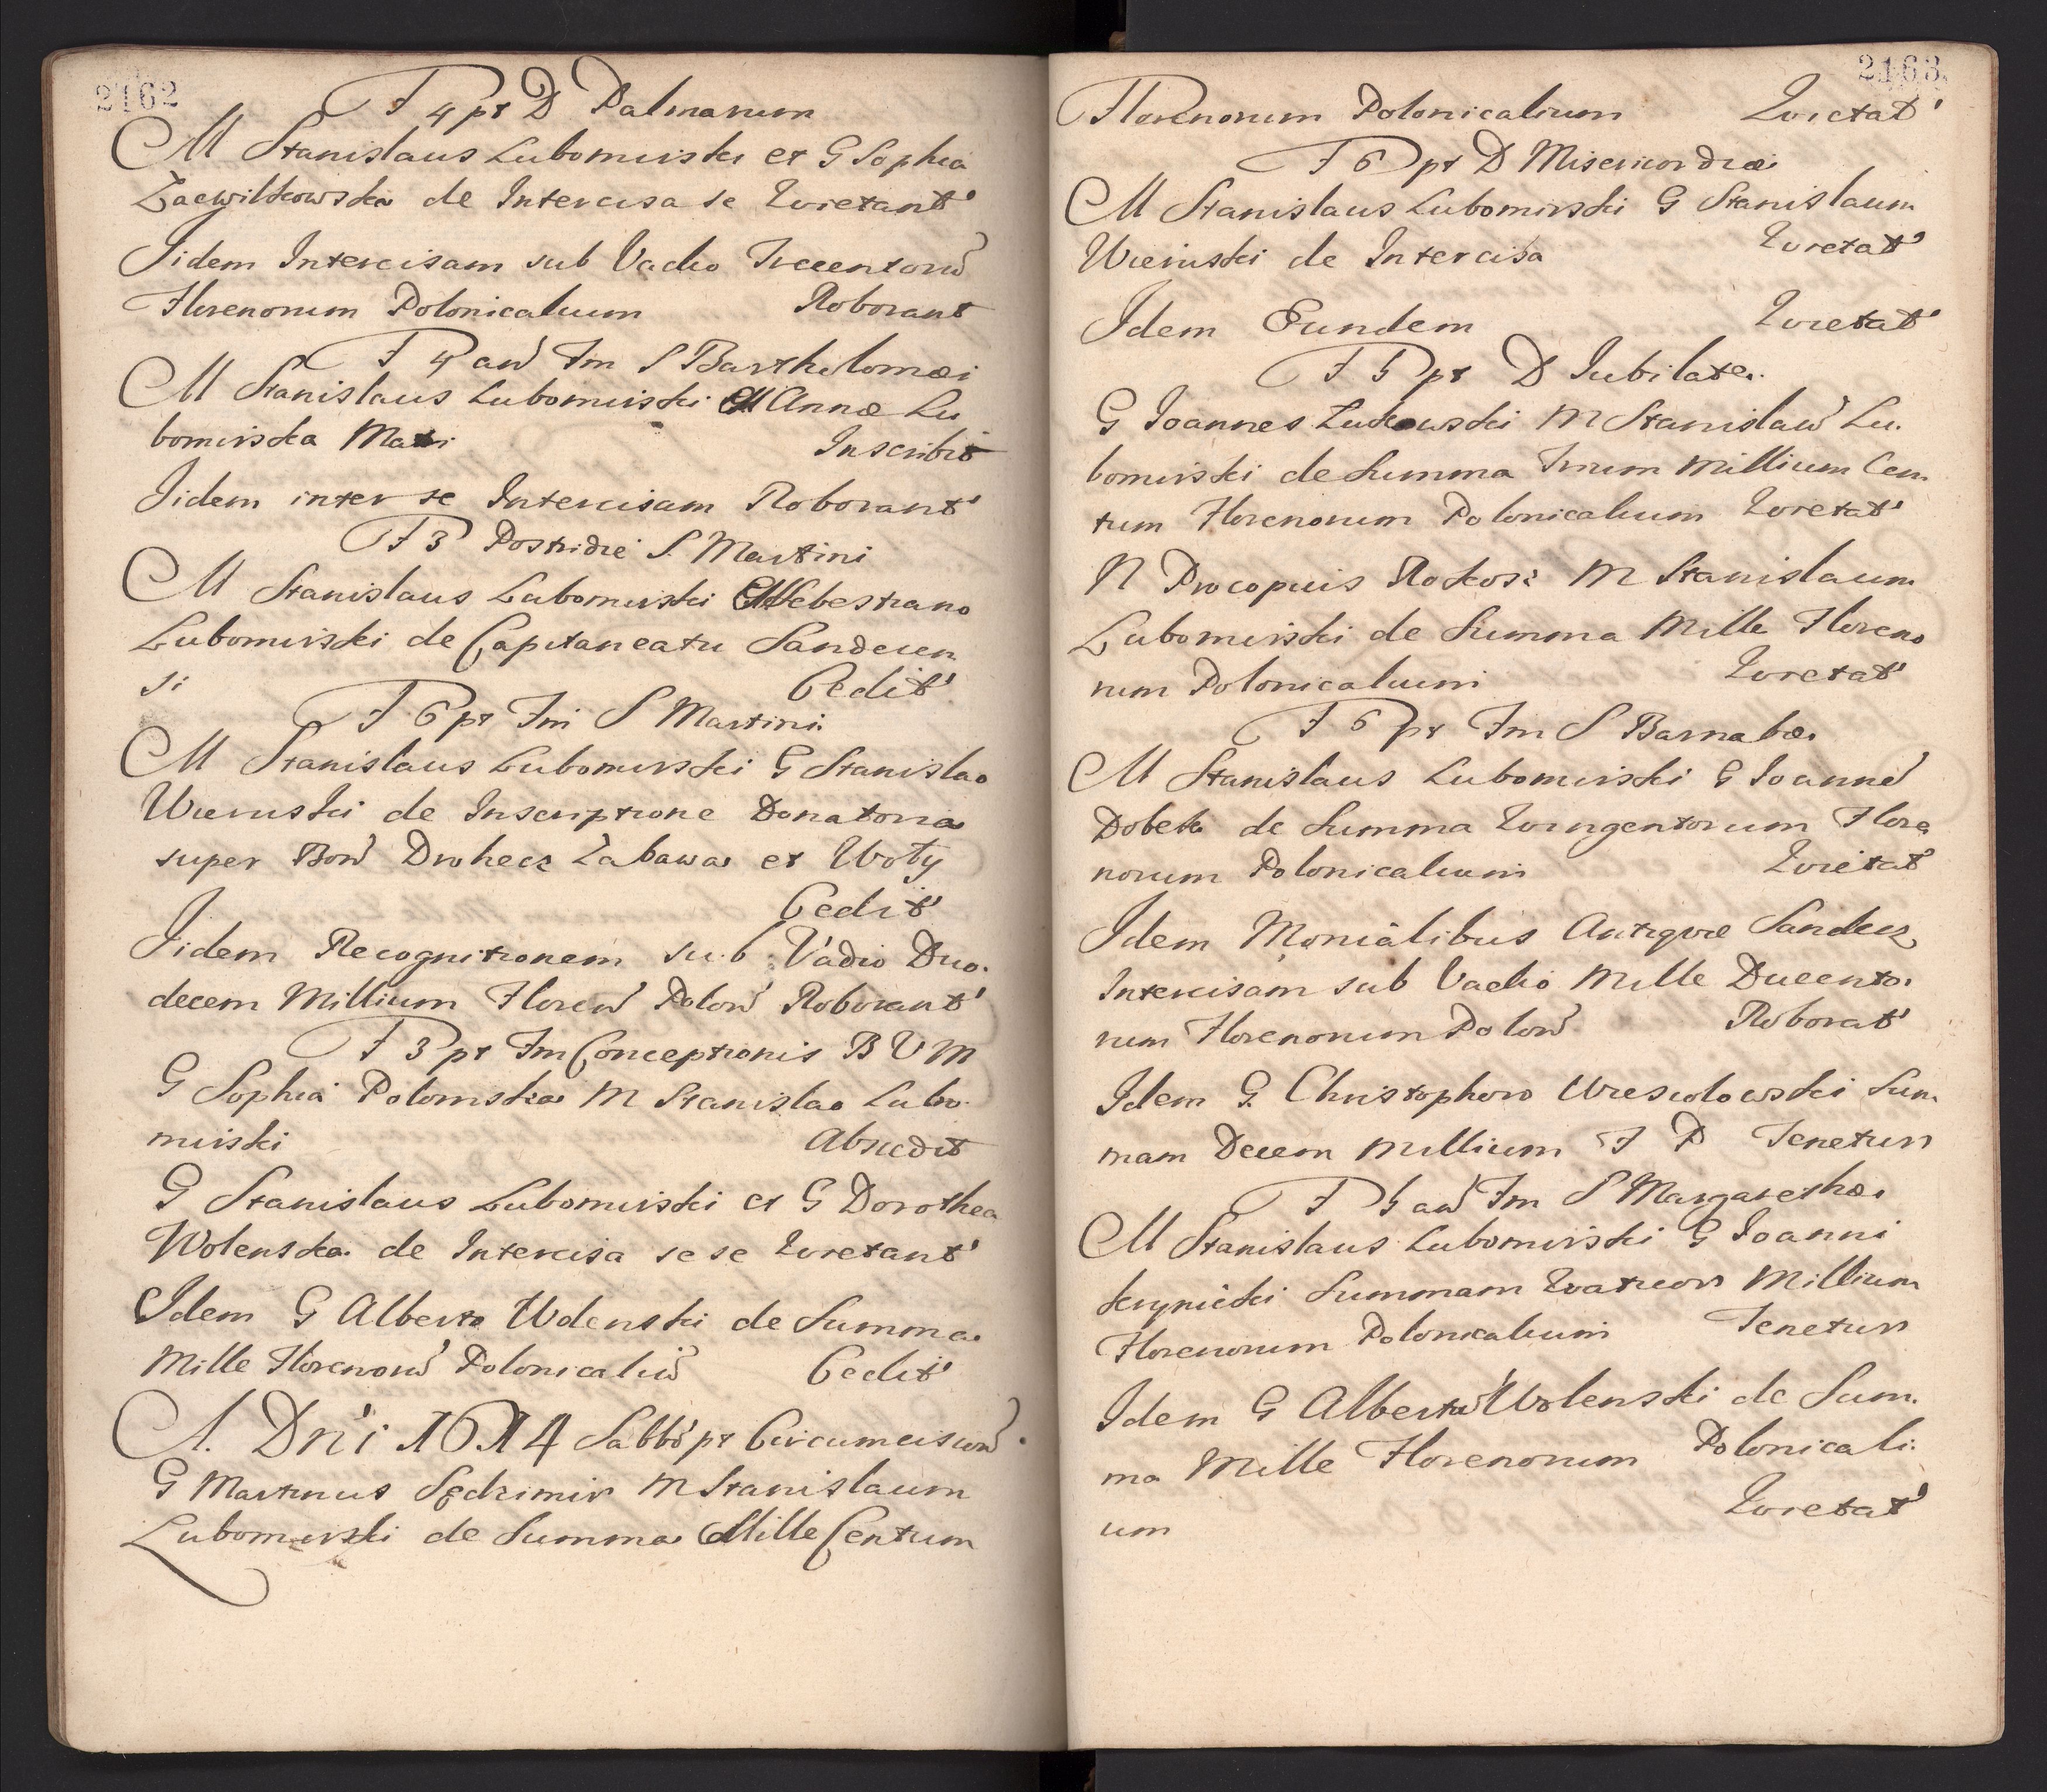 2162
F 4 pt D Palmarum
M Stanislaus Lubomirski et G Sophia
de Intercisa se Quietant
Iidem Intercisam sub Vadio Trecentorū
Florenorum Polonicalium Roborant
F 4 an̄ Fm S Bartholomæi
M Stanislaus Lubomirski M Annæ Lu
bomirska Inscribit
Iidem inter se Intercisam Roborant
F 3 Postridie S. Martini
M Stanislaus Lubomirski M Sebestiano
Lubomirski de Capitaneatu Sandecen
si Cedit
F 6 pt Fm S Martini
M Stanislaus Lubomirski G Stanislao
Wieruski de Inscriptione Donatoria
super Bon̄ Drohecz Zabawa et Woły
Cedit
Iidem Recognitionem sub Vadio Duo.
decem Millium Floren̄ Polon̄ Roborant
F 3 pt Fm Conceptionis B V M
G Sophia Polomska M Stanislao Lubo
mirski Abrędit
G Stanislaus Lubomirski et G Dorothea
Wolenska de Intercisa se se Quietant
Idem G Alberto Wolenski de Summa
Mille Florenorū Polonicaliū Cedit
A. Dn̄i 1614 Sabbō pt Circumcision̄
G Martinus Sędzimir M Stanislaum
Lubomirski de Summa Mille Centum
2163.
Florenorum Polonicalium Quietat
F 6 pt D Misericordiæ
M Stanislaus Lubomirski G Stanislaum
Wieruski de Intercisa Quietat
Idem Eundem Quietat
F 5 pt D Iubilate.
G Ioannes Lukowski M Stanislaū Lu.
bomirski de Summa Trium Millium Cen
tum Florenorum Polonicalium Quietat
N Procopius Rokosz M Stanislaum
Lubomirski de Summa Mille Floreno
rum Polonicalium Quietat
F 6 pt Fm S Barnabæ.
M Stanislaus Lubomirski G Ioannē
Dobek de Summa Quingentorum Flore
norum Polonicalium Quietat
Idem Monialibus Antiquæ Sandecz
Intercisam sub Vadio Mille Ducento.
rum Florenorum Polon̄ Roborat
Idem G. Christophoro Wiesiolowski Sum
mam Decem Millium F P Tenetur
F 5 an̄ Fm S Margarethæ.
M Stanislaus Lubomirski G Ioanni
Krynicki Summam Quatuor Millium
Florenorum Polonicalium Tenetur
Idem G Albertū Wolenski de Sum.
ma Mille Florenorum Polonicali.
um Quietat